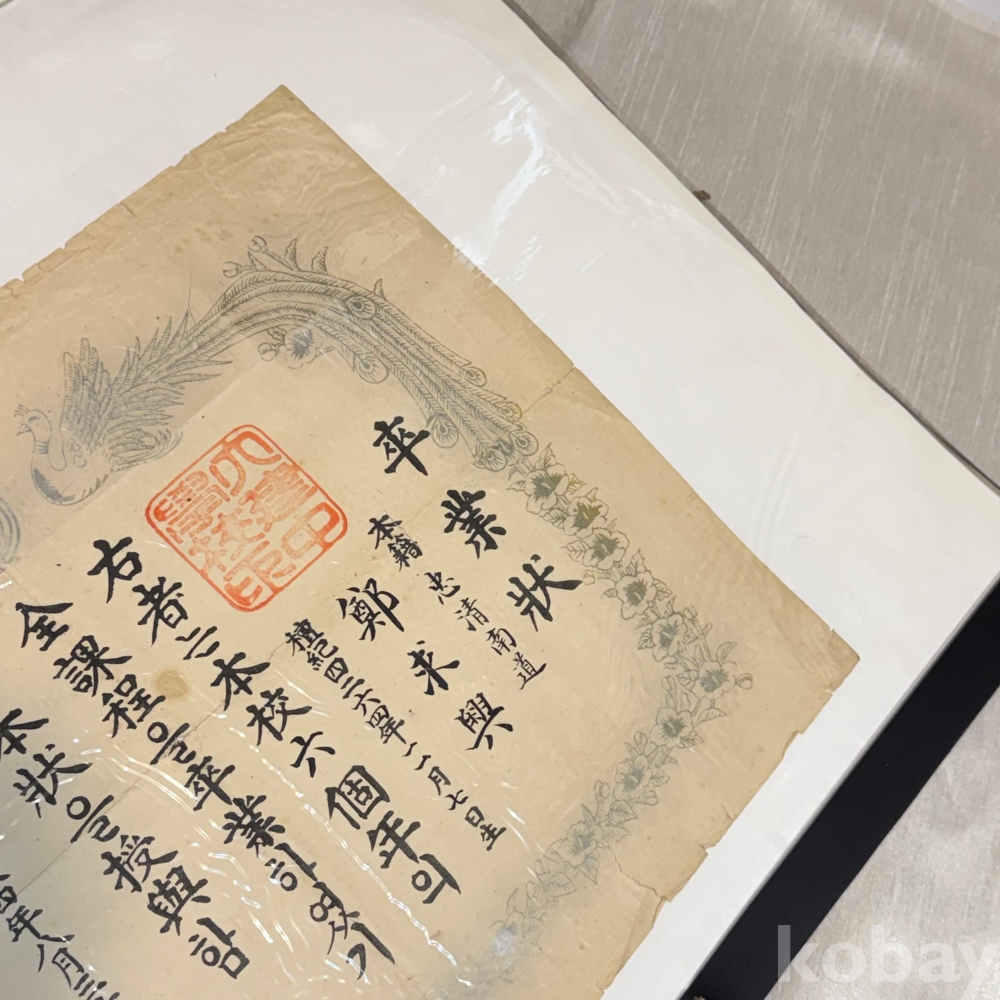 卒業狀
本籍 忠清南道
鄭求興
檀紀四二六四年二月七日生
右者는本校六個年의
全課程을卒業하였기
本狀을授與함
四年八月
大建中
學校印
kobay